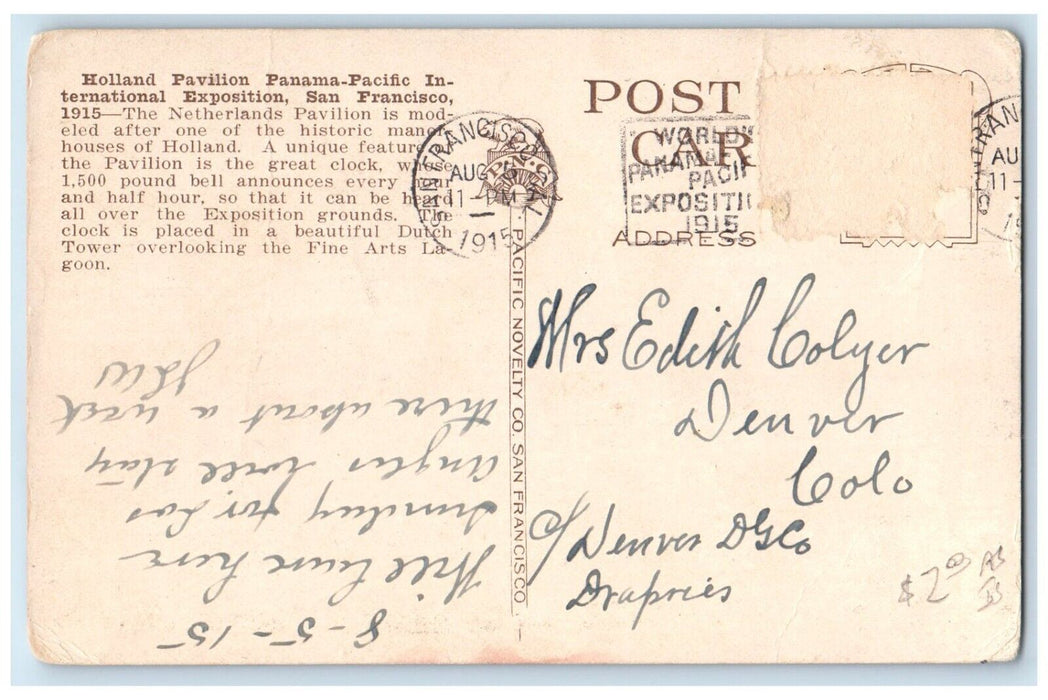 Holland Pavilion Panama-Pacific In-
ternational Exposition, San Francisco,
1915—The Netherlands Pavilion is mod-
eled after one of the historic manor
houses of Holland. A unique feature
the Pavilion is the great clock, whose
1,500 pound bell announces every hour
and half hour, so that it can be heard
all over the Exposition grounds. The
clock is placed in a beautiful Dutch
Tower overlooking the Fine Arts La-
goon.
POST
CAR
ADDRESS
SAN FRANCISCO, CAL.
AUG 5
11-PM
1915
WORLD'
PANAMA
PACIF
EXPOSITI
1915
RAN
AU
11-
PACIFIC NOVELTY CO. SAN FRANCISCO.
8-5-15
Will leave here
Sunday for Los
Angles will stay
there about a week
Mrs Edith Colyer
Denver
Colo
c/ Denver DGCo
Drapries
$2.00 AS
IS